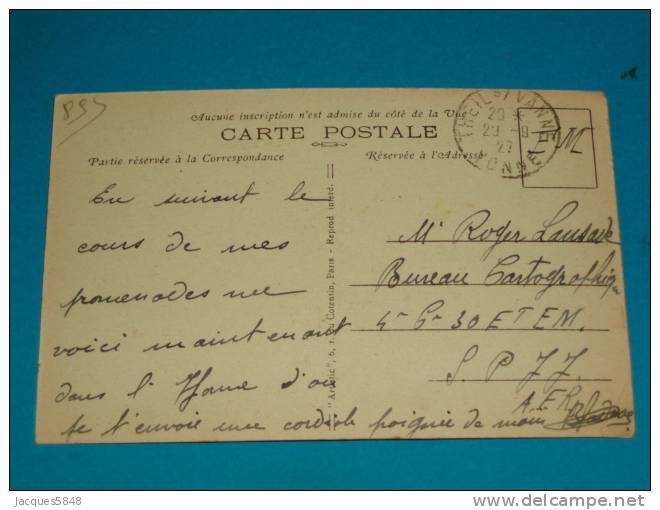 895
Aucune inscription n'est admise du côté de la Vue
CARTE POSTALE
Partie réservée à la Correspondance
Réservée à l'Adresse
THEIL S/ VANNE
20 *
29 -9
27
YONNE
F.M
En suivant le
cours de mes
promenades me
voici maintenant
dans l'Yonne d'où
je t'envoie une cordiale poignée de main
"Artistic", 6, r. du Cotentin, Paris - Reprod interd.
Mr Roger
Bureau Cartographique
4e Gr 30 ETEM.
S. P 77.
A.E.R.
Jacques5848
delcampe.net